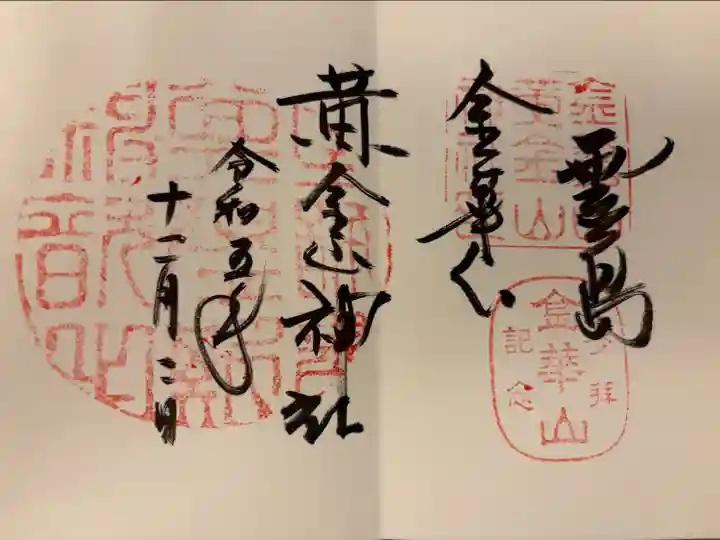 霊島
金華山
黄金山神社
令和五年
十二月二日
黄金山
参拝
金華山
記念